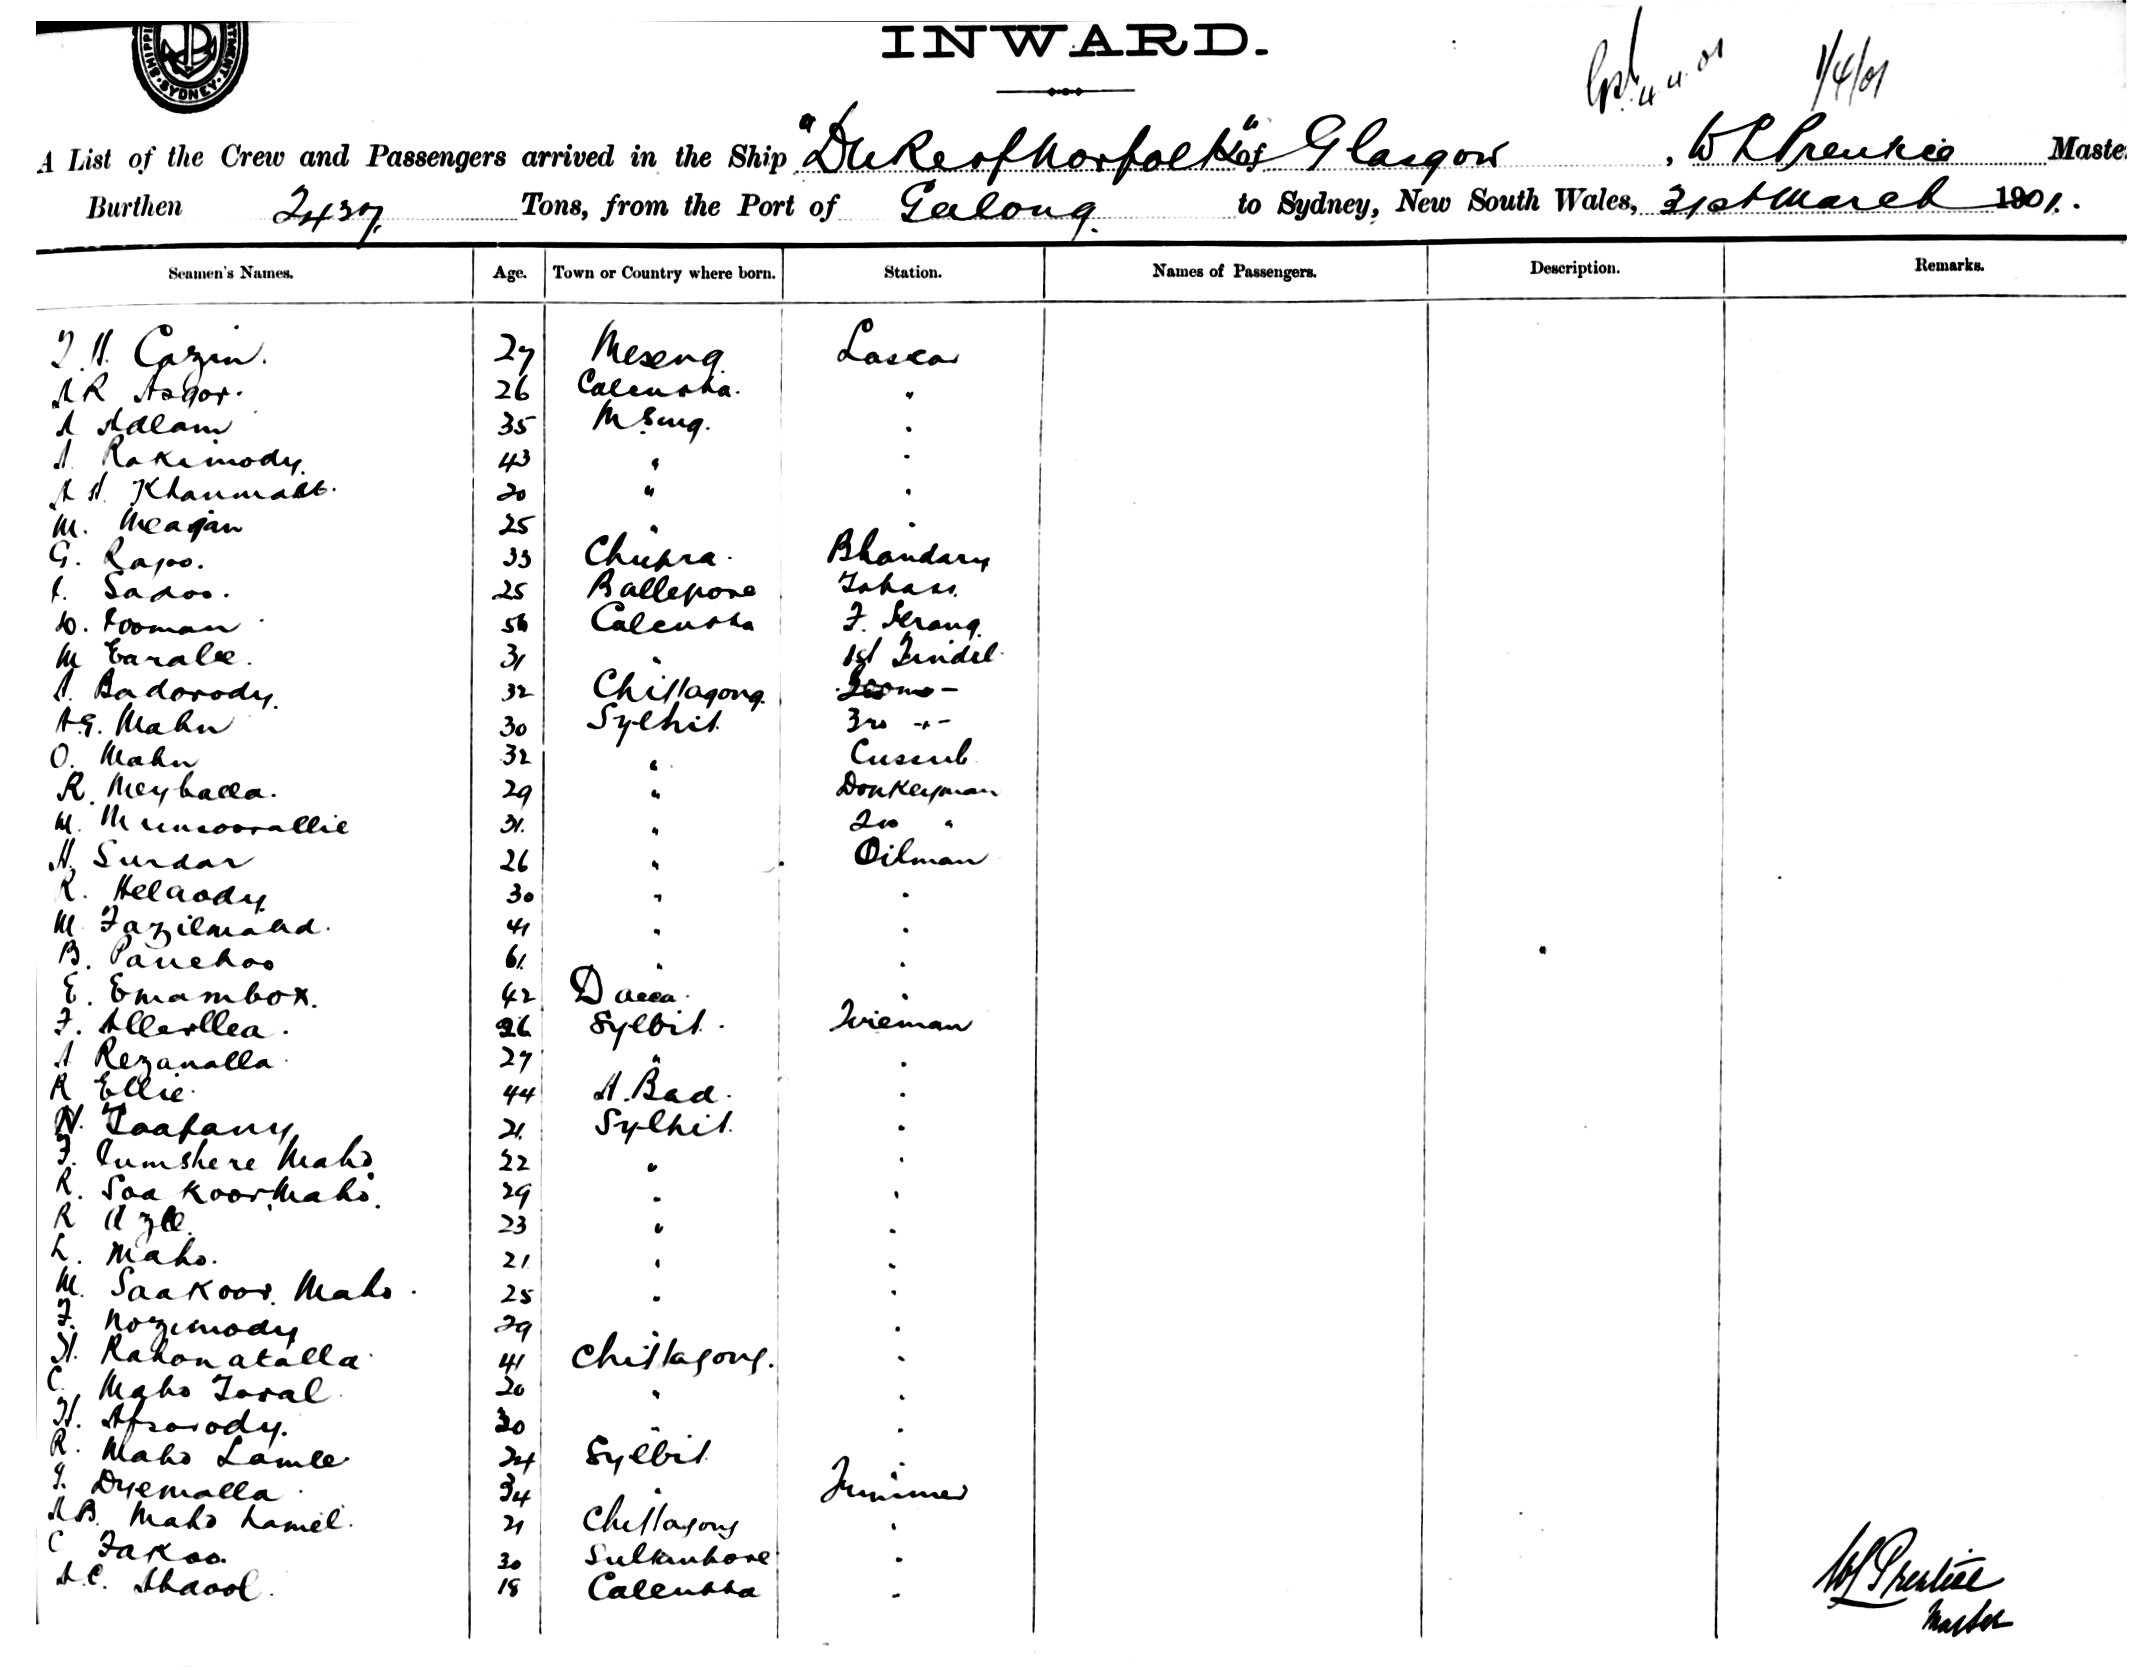 INWARD.
1/4/01
A List of the Crew and Passengers arrived in the Ship "Duke of Norfolk" of Glasgow, W L Prentice Maste
Burthen 2437. Tons, from the Port of Geelong. to Sydney, New South Wales, 31st March 1901.
Seamen's Names. Age. Town or Country where born. Station. Names of Passengers. Description. Remarks.
Cazin. 27 Lascar
A R Asgor. 26 Calcutta. "
A Adlam 35 M Sing. "
A. Rakimody. 43 " "
A H. Khanmahb. 20 " "
M. Meajan 25 " "
G. Rajoo. 33 Chupra. Bhandary
Sadoo. 25 Ballepore Topass.
56 Calcutta F. Serang.
M Earalee. 31 " 1st Tindel
A. Badorody. 32 Chittagong.
A.G. Mahn 30 Sylhit. 3rd -"-
O. Mahn 32 " Cussub
R. Meyballa. 29 " Donkeyman
M. Munsoorallie 31. " 2nd "
H. Surdar 26 " Oilman
R. Helaody 30 " "
M. Fazilmahd. 41 " "
B. Panchoo 61. " "
E. Emambox. 42 Dacca. "
F. 26 Sylhit. Fireman
A Rezanalla. 27 " "
R Ellie. 44 A. Bad. "
N. 21. Sylhit. "
F. Jumshere Mahd. 22 " "
R. Saakoor Mahd. 29 " "
R 23 " "
L. Mahd. 21 " "
M. Saakoor Mahd. 25 " "
F. Nozimody 29 " "
41 Chittagong. "
C. Mahd 20 " "
H. 30 " "
R. Mahd Lamle 24 Sylhit. "
Dyemalla. 34 " Trimmer
A B. Mahd hamel. 21 Chittagong "
C Fakoo. 30 Sultanpore "
A.C. Abdool. 18 Calcutta "
W L Prentice
Master